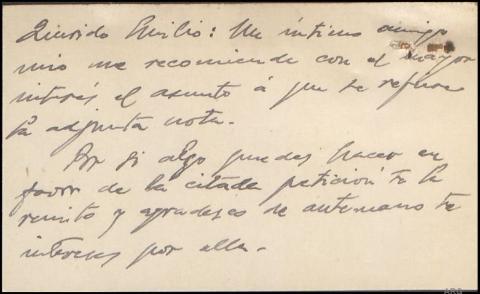 Querido Emilio: Un íntimo amigo
mio me recomienda con el mayor
interés el asunto á que se refiere
la adjunta nota.
Por si algo puedes hacer en
favor de la citada petición te la
remito y agradezco de antemano te
intereses por ella.